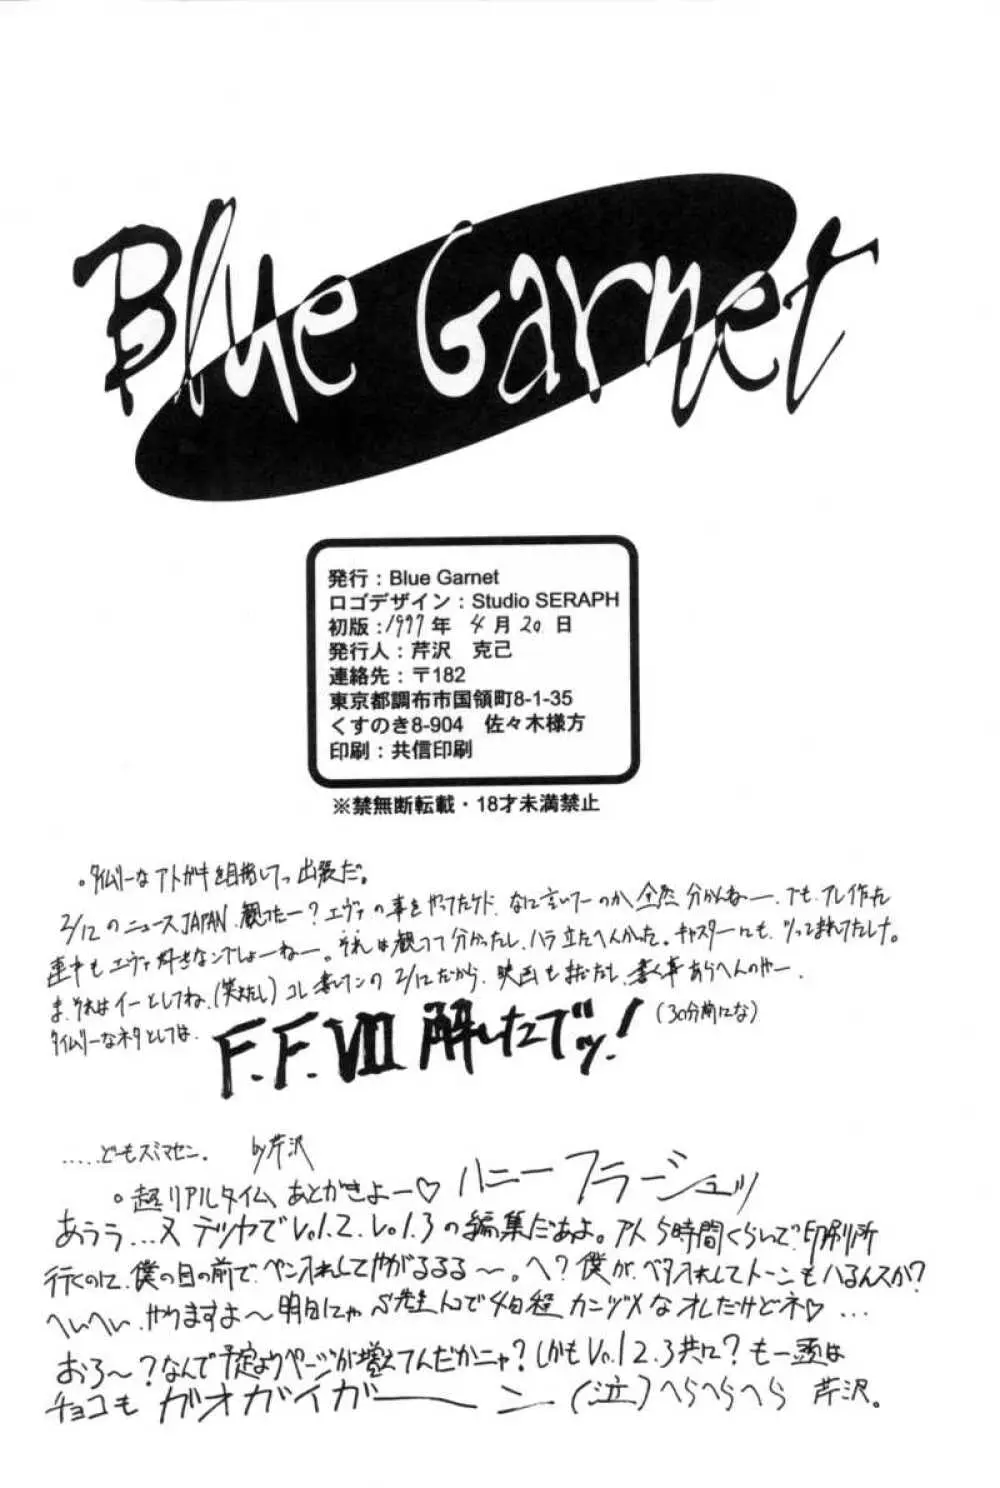 Blue Garnet
発行：Blue Garnet
ロゴデザイン：Studio SERAPH
初版：1997年 4月20日
発行人：芹沢 克己
連絡先：〒182
東京都調布市国領町8-1-35
くすのき8-904 佐々木様方
印刷：共信印刷
※禁無断転載・18才未満禁止
。タイムリーなアトガキを目指してっ出張だ。
2/12のニュースJAPAN、観ったー？エヴァの事をやってたケド、なに言いてーのか、全然分かんねー。でも、アレ作った
連中もエヴァ好きなんでしょーねー。それは観ってて分かったし、ハラ立たへんかった。キャスターにも、つっこまれてたしナ。
ま、それはイーとしてね、(笑えたし)コレ書いてンの2/12だから、映画もまだだし、書く事あらへんのやー
タイムリーなネタとしては、
F.F.VII 解したでッ！
(30分前にな)
.....どーもスミマセン。 by芹沢
。超リアルタイム、あとがきよー♡ ハニーフラーッシュッ
あうう...ヌ デッカでVol.2、Vol.3の編集だあよ。アト5時間くらいで印刷所
行くのに、僕の目の前で、ペン入れしてやがるるる〜。へ？僕が、ベタ入れしてトーンもハるんスか？
へいへい、やりますよ〜明日にゃ
カンヅメなオレだけどネ♡...
おろ〜？なんで予定よりページが増えてんだかニャ？しかもVol.2.3共に？も一頭は
チョコも ガオガイガーーン (泣)へらへらへら 芹沢。